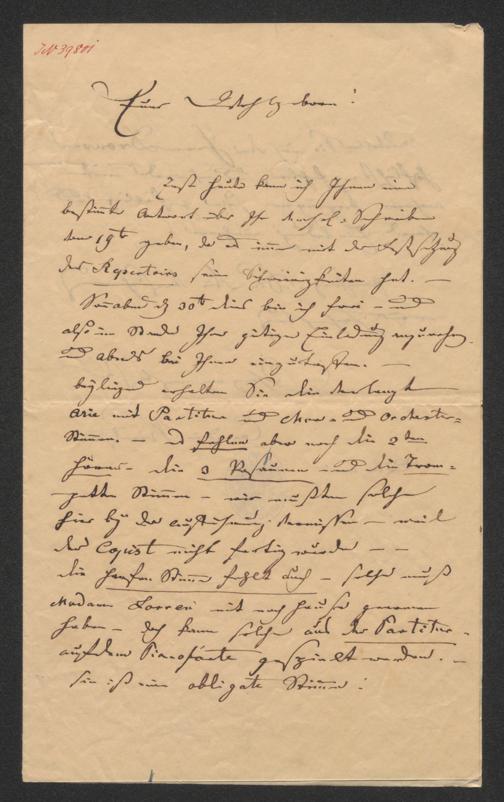 IN 39801
Euer Wohlgeboren!
Erst heute kann ich Ihnen eine
bestimmte Antwort über Ihr Schreiben
vom 19t geben, da es immer mit der Festsetzung
des Repertoires sein Schwierigkeiten hat. —
Sonnabend d 30t dies bin ich frei – und
also im Stande Ihrer gütigen Einladung
und abends bei Ihnen einzutreffen. —
beyliegend erhalten Sie die verlangte
Arie mit Partitur und Chor – und Orchester=
Stimmen. – es fehlen aber noch die 2ten
Hörner – die 3 Posaunen – und die Trom=
petten Stimmen – wir mußten solche
hier bey der Aufführung vermissen – weil
der Copist nicht fertig wurde – –
die Harfen Stimme fehlt auch – solche muß
Madame mit nach Hause genommen
haben – doch kann solche aus der Partitur –
auf dem Pianoforte gespielt werden. –
sie ist eine obligate Stimme!